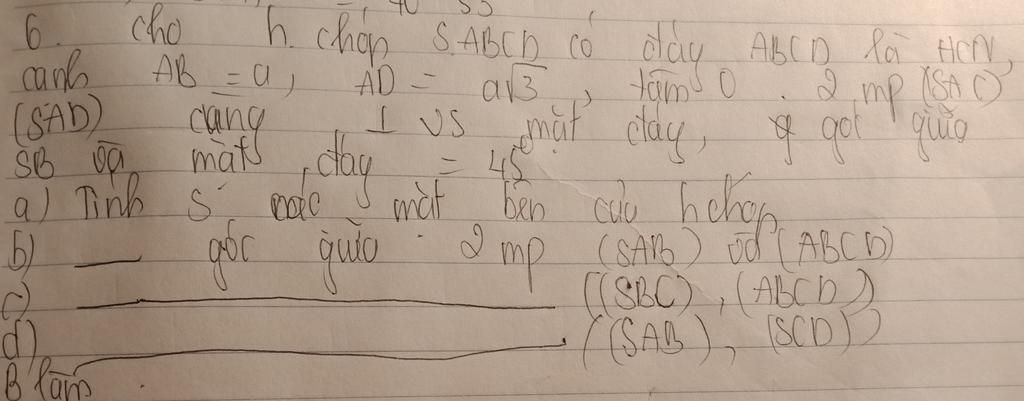 6. Cho h. chóp S.ABCD có đáy ABCD là HCN,
cạnh AB = a, AD = a√3, tâm O. 2 mp (SAC)
(SAB) cùng ⊥ vs mặt đáy, góc giữa
SB và mặt đáy = 45°
a) Tính S các mặt bên của h chóp
b) — góc giữa 2 mp (SAB) và (ABCD)
c) — ((SBC), (ABCD))
d) — ((SAB), (SCD))
B làm